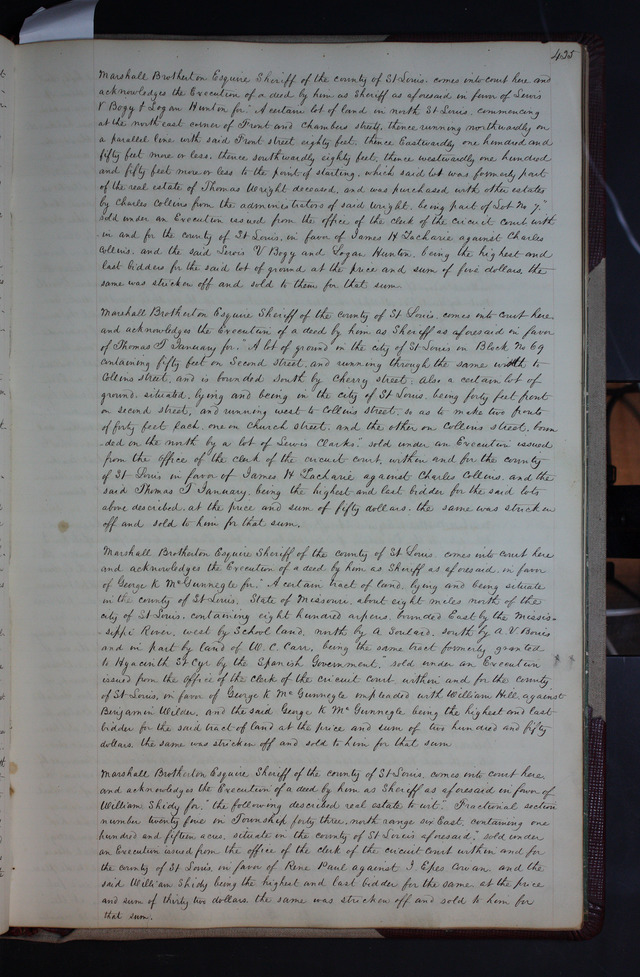 425
Marshall Brotherton Esquire Sheriff of the county of St Louis. comes into court here and
acknowledges the Execution of a deed by him as Sheriff as aforesaid in favor of Lewis
V Bogy & Logan Hunton for "A certain lot of land in north St Louis, commencing
at the north east corner of Front and Chambers streets, thence running northwardly on
a parallel line with said Front street eighty feet, thence Eastwardly one hundred and
fifty feet more or less, thence southwardly eighty feet, thence westwardly one hundred
and fifty feet more or less to the point of starting, which said lot was formerly part
of the real estate of Thomas Wright deceased, and was purchased with other estates
by Charles Collins from the administrators of said Wright, being part of Lot No 7,"
sold under an Execution issued from the office of the clerk of the circuit court with
-in and for the county of St Louis, in favor of James H Zacharie against Charles
Collins, and the said Lewis V Bogy and Logan Hunton, being the highest and
last bidders for the said lot of ground at the price and sum of five dollars, the
same was stricken off and sold to them for that sum.
Marshall Brotherton Esquire Sheriff of the county of St Louis, comes into court here,
and acknowledges the Execution of a deed by him as Sheriff as aforesaid in favor
of Thomas T January for "A lot of ground in the city of St Louis in Block No 69
containing fifty feet on Second street, and running through the same width to
Collins street, and is bounded south by Cherry street; also a certain lot of
ground, situated, lying and being in the city of St Louis, being forty feet front
on second street, and running west to Collins street, so as to make two fronts
of forty feet each, one on Church street, and the other on Collins street, boun
-ded on the north by a lot of Lewis Clarks," sold under an Execution issued
from the office of the clerk of the circuit court, within and for the county
of St Louis in favor of James H Zacharie against Charles Collins, and the
said Thomas T January, being the highest and last bidder for the said lots
above described, at the price and sum of fifty dollars, the same was stricken
off and sold to him for that sum.
Marshall Brotherton Esquire Sheriff of the county of St Louis, comes into court here
and acknowledges the Execution of a deed by him as Sheriff as aforesaid, in favor
of George K McGunnegle for "A certain tract of land, lying and being situate
in the county of St Louis, State of Missouri, about eight miles north of the
city of St Louis, containing eight hundred arpens, bounded East by the Missis-
-sippi River, west by School land, north by A Soulard, south by A. V Bouis
and in part by land of W. C. Carr, being the same tract formerly granted
to Hyacinth St Cyr by the Spanish Government," sold under an Execution
issued from the office of the Clerk of the circuit court within and for the county
of St Louis, in favor of George K McGunnegle impleaded with William Hill, against
Benjamin Wilder, and the said George K McGunnegle being the highest and last
bidder for the said tract of land at the price and sum of two hundred and fifty
dollars, the same was stricken off and sold to him for that sum
Marshall Brotherton Esquire Sheriff of the county of St Louis, comes into court here,
and acknowledges the Execution of a deed by him as Sheriff as aforesaid in favor of
William Shidy for, "the following described real estate to wit: Fractional section
number twenty five in Township forty three, north range six East, containing one
hundred and fifteen acres, situate in the county of St Louis aforesaid," sold under
an Execution issued from the office of the clerk of the circuit court within and for
the county of St Louis, in favor of Rene Paul against J Epes Cowan and the
said William Shidy being the highest and last bidder for the same, at the price
and sum of thirty two dollars, the same was stricken off and sold to him for
that sum.